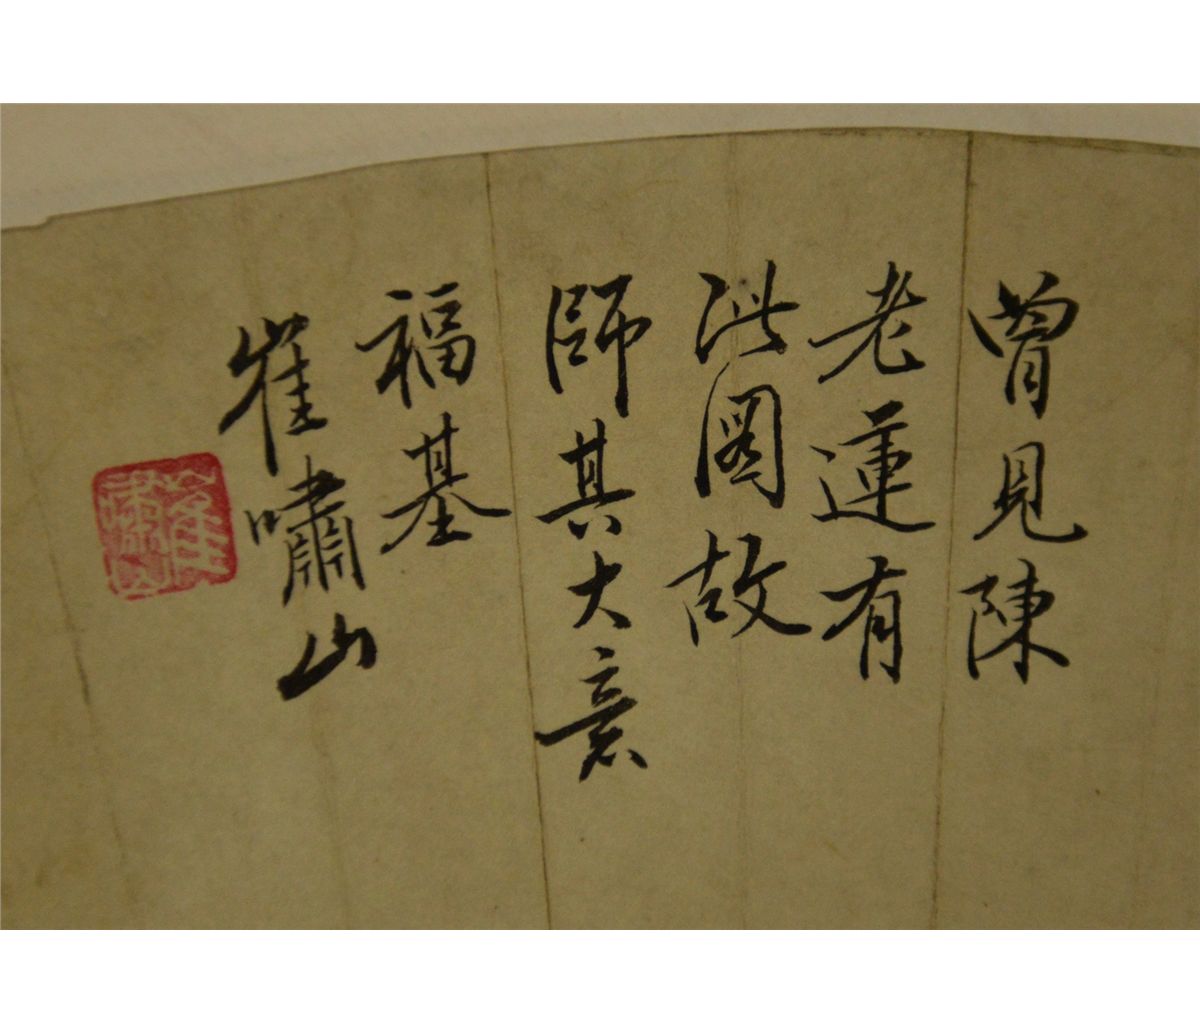 曾見陳
老蓮有
此圖故
師其大意
福基
崔嘯山
崔嘯山